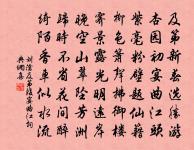 及第新春选胜游
杏园初宴曲江头
紫毫粉壁题仙籍
柳色箫声拂御楼
霁景露光明远岸
晚空山翠坠芳洲
归时不省花间醉
绮陌香车似水流
刘沧及第后宴曲江词
典调喜